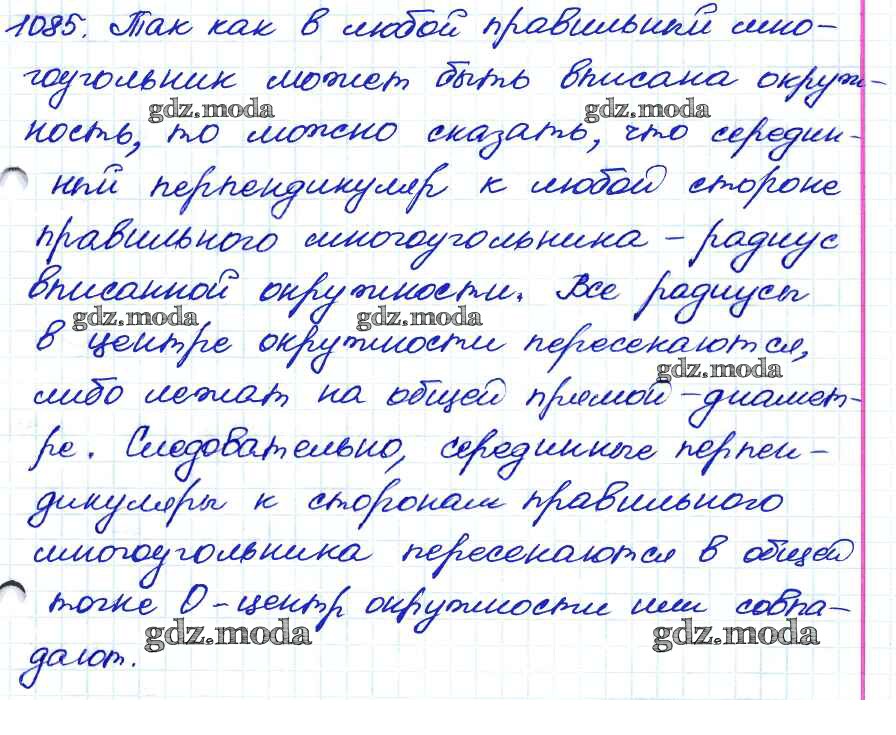 1085. Так как в любой правильный мно-
гоугольник может быть вписана окруж-
gdz.moda gdz.moda
ность, то можно сказать, что середин-
ный перпендикуляр к любой стороне
правильного многоугольника – радиус
вписанной окружности. Все радиусы
gdz.moda gdz.moda
в центре окружности пересекаются,
gdz.moda
либо лежат на общей прямой – диамет-
ре. Следовательно, серединные перпен-
дикуляры к сторонам правильного
многоугольника пересекаются в общей
точке О – центр окружности или совпа-
gdz.moda gdz.moda
дают.